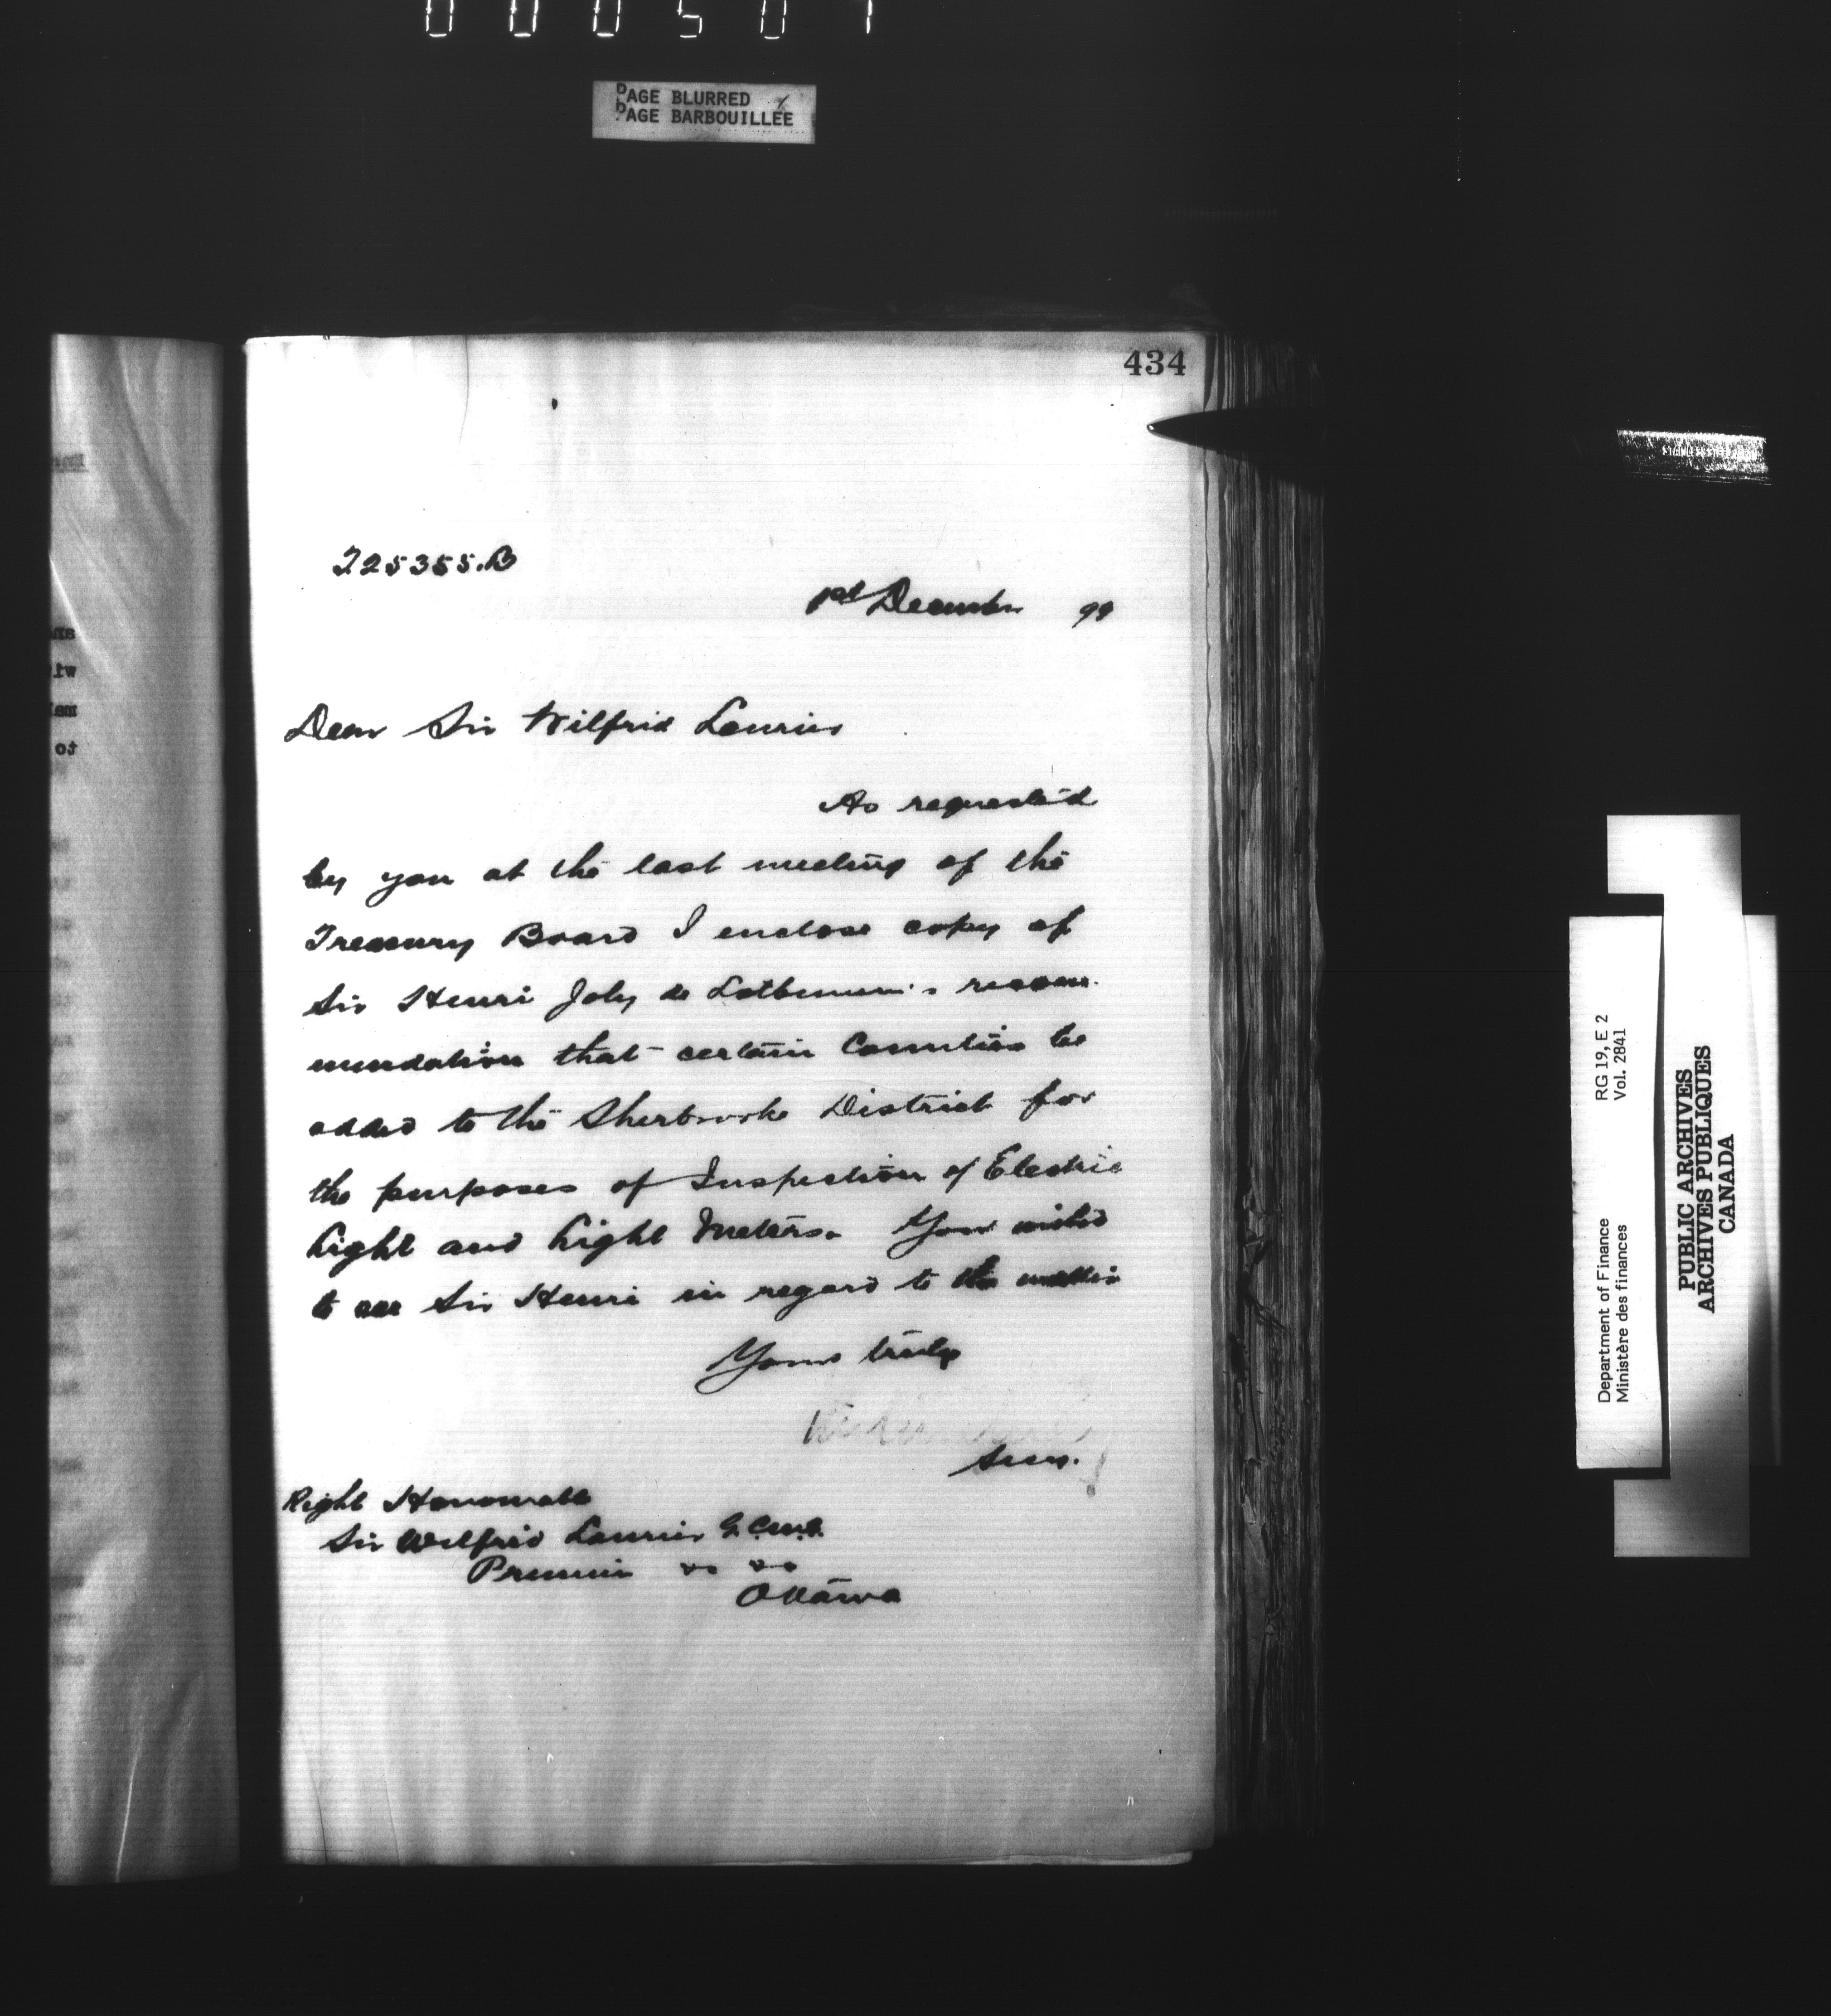 000501
PAGE BLURRED
PAGE BARBOUILLÉE
434
225355.B
1st December 99
Dear Sir Wilfrid Laurier
As requested
by you at the last meeting of the
Treasury Board I enclose copy of
Sir Henri Joly de Lotbiniere's recom-
mendation that certain Counties be
added to the Sherbrooke District for
the purposes of Inspection of Electric
Light and Light Meters. You wished
to see Sir Henri in regard to the matter
Yours truly
Secy.
Right Honourable
Sir Wilfrid Laurier G.C.M.G.
Premier &c &c
Ottawa
Department of Finance RG 19, E 2
Ministère des finances Vol. 2841
PUBLIC ARCHIVES
ARCHIVES PUBLIQUES
CANADA